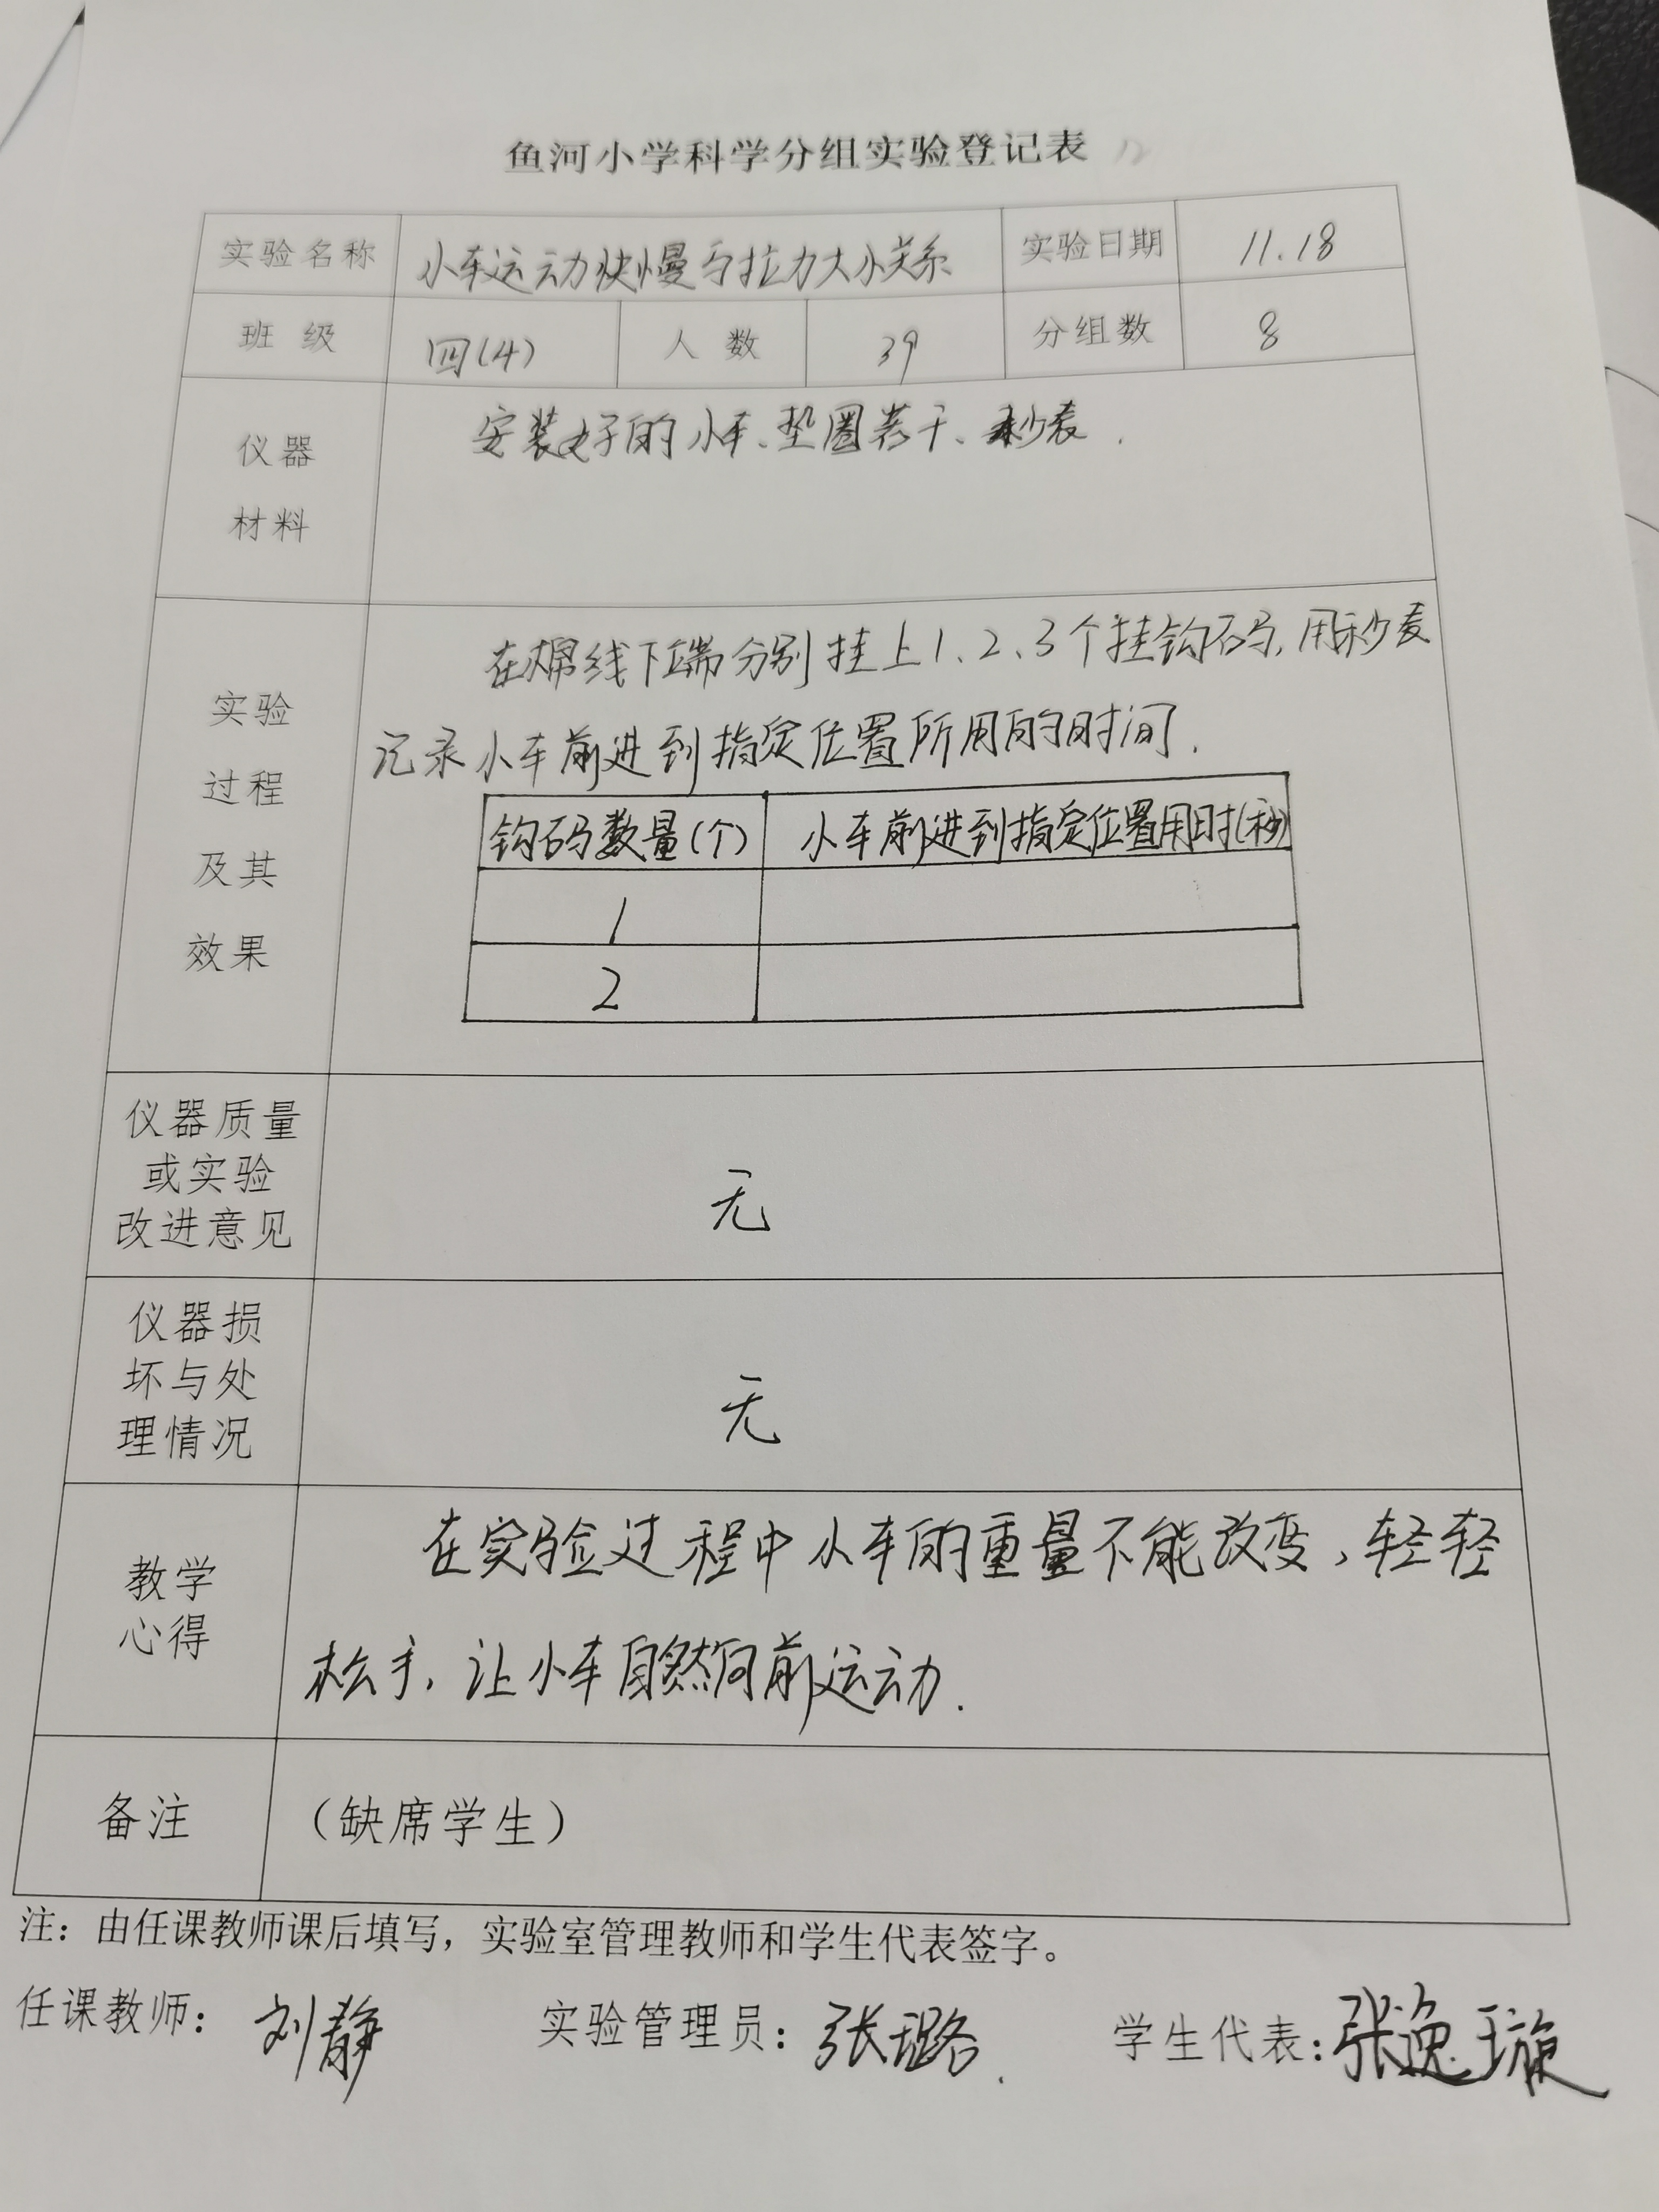 鱼河小学科学分组实验登记表 12
实验名称 小车运动快慢与拉力大小关系 实验日期 11.18
班 级 四(4) 人 数 39 分组数 8
仪器
材料
安装好的小车、垫圈若干、秒表.
实验
过程
及其
效果
在棉线下端分别挂上1、2、3个挂钩码,用秒表
记录小车前进到指定位置所用的时间.
钩码数量(个) 小车前进到指定位置用时(秒)
1
2
仪器质量
或实验
改进意见
无
仪器损
坏与处
理情况
无
教学
心得
在实验过程中小车的重量不能改变,轻轻
松手,让小车自然向前运动.
备注 (缺席学生)
注:由任课教师课后填写,实验室管理教师和学生代表签字。
任课教师: 刘静 实验管理员: 张璐. 学生代表: 张逸璇